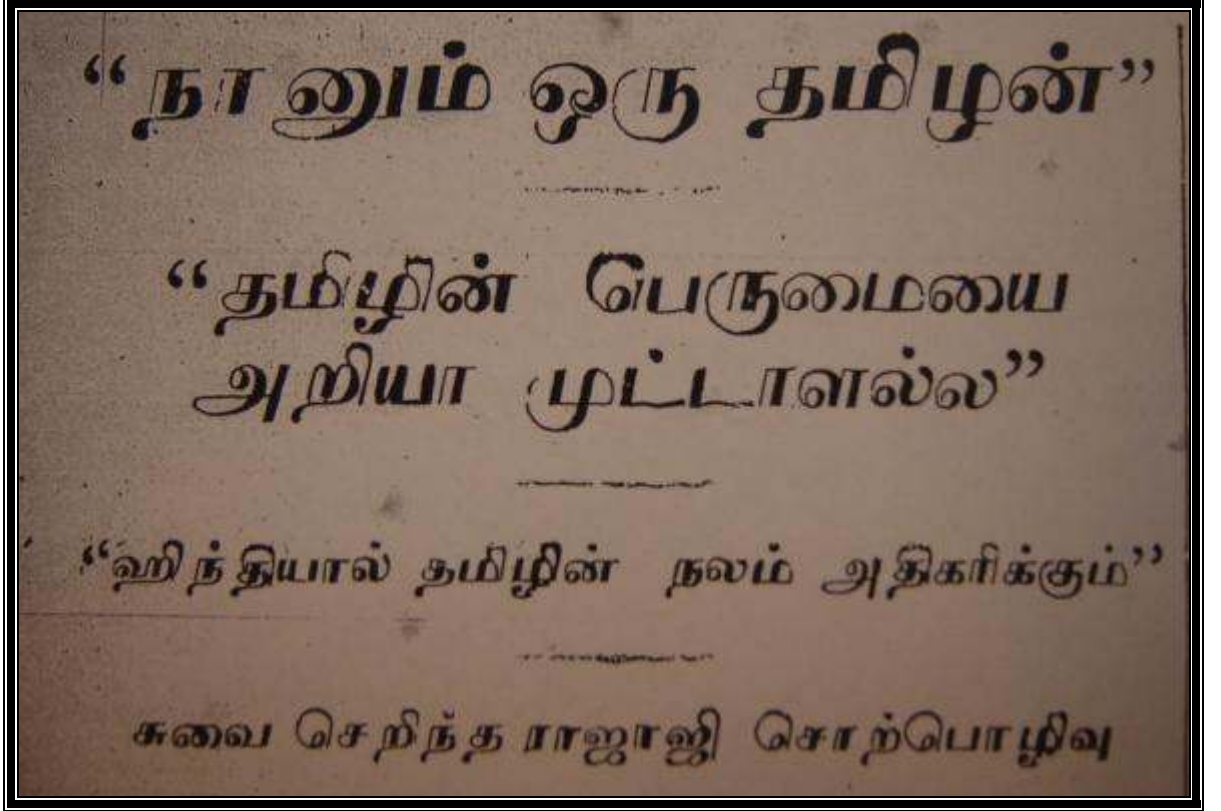 “நானும் ஒரு தமிழன்”
“தமிழின் பெருமையை
அறியா முட்டாளல்ல”
“ஹிந்தியால் தமிழின் நலம் அதிகரிக்கும்”
சுவை செறிந்த ராஜாஜி சொற்பொழிவு